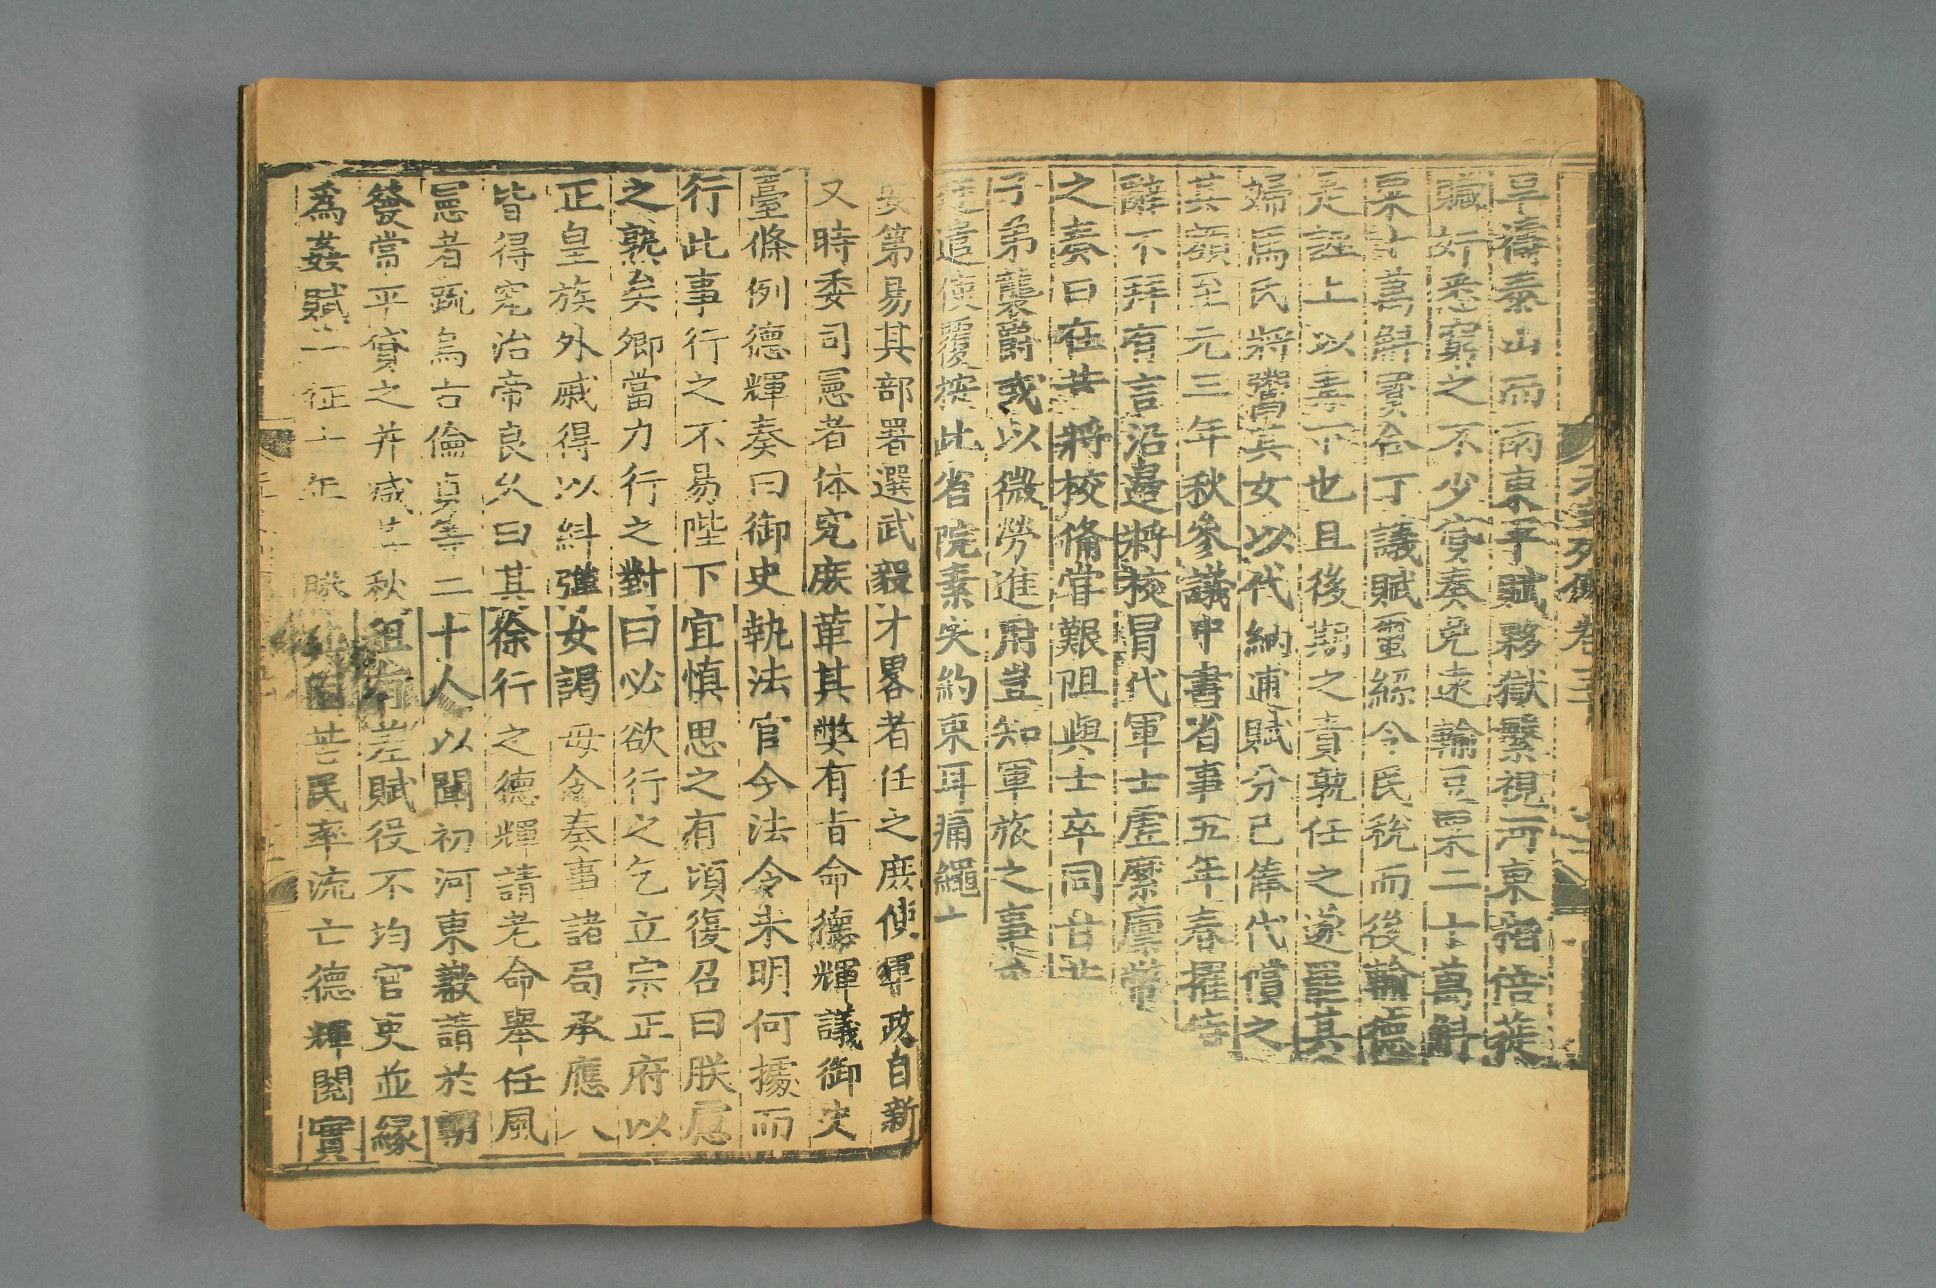 旱禱泰山而雨東平賦夥獄繁視河東相倍蓰
贓奸悉窮之不少貸奏免遠輸豆粟二十萬斛
粟十萬斛賓合丁議賦蠶絲令民稅而後輸德
是誣上以毒下也且後期之責孰任之遂罷其
婦馬氏將鬻其女以代納逋賦分己俸代償之
其額至元三年秋參議中書省事五年春擢侍
辭不拜有言沿邊將校冒代軍士虛糜廩幣
之奏曰在昔將校備嘗艱阻與士卒同甘苦
子弟襲爵或以微勞進用豈知軍旅之事
遣使覆按此省院素失約束耳痛繩
第易其部署選武毅才畧者任之庶使軍政自新
又時委司憲者体究庶革其弊有旨命德輝議御史
臺條例德輝奏曰御史執法官今法令未明何據而
行此事行之不易陛下宜慎思之有頃復召曰朕慮
之熟矣卿當力行之對曰必欲行之乞立宗正府以
正皇族外戚得以糾彈女謁毋令奏事諸局承應人
皆得究治帝良久曰其徐行之德輝請老命舉任風
憲者疏烏古倫貞等二十人以聞初河東歉請於朝
發常平貸之并減其秋租有差賦役不均官吏並緣
為姦賦一征十年 民率流亡德輝閱實
元史列傳卷五十